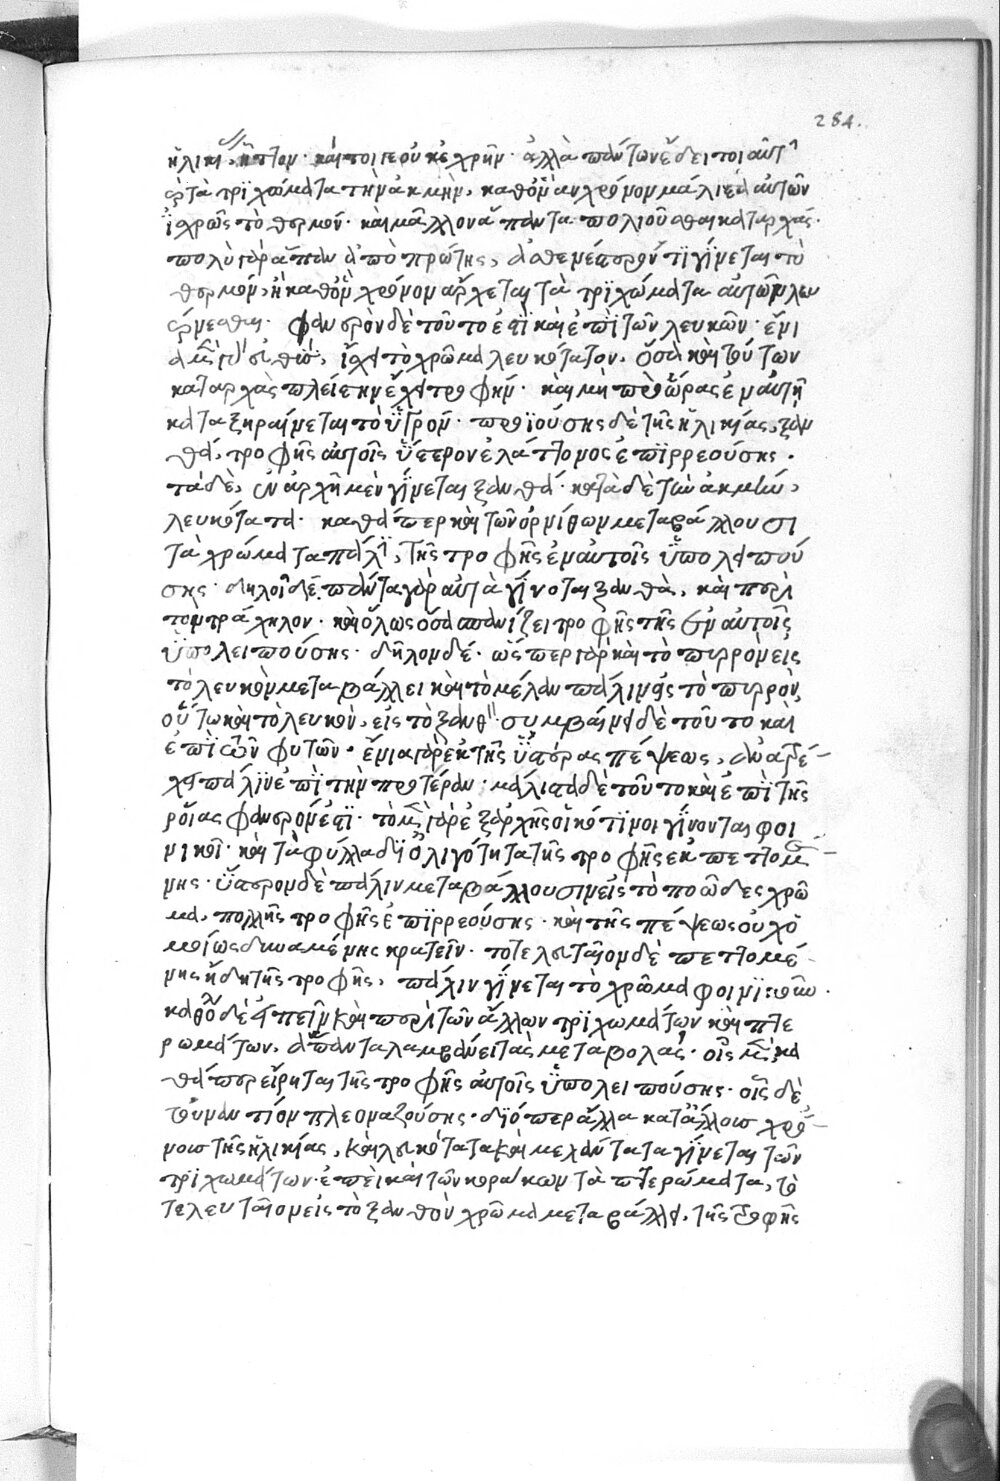 284.
ἡλικίαν, ἧττον· καίτοιγε οὐκ ἐχρῆν· ἀλλὰ πάντων ἔδει τοιαῦτ
τὰ τριχώματα τὴν ἀκμήν, καθ' ὃν ἂν χρόνον μάλιστα αὐτῶν
ἰσχυρὸς τὸ θερμόν· καὶ μᾶλλον ἅπαντα πολιοῦσθαι καταρχάς·
πολὺ γὰρ ἅπαν ἀπὸ πρώτης, ἀσθενέστερόν τι γίνεται τὸ
θερμόν, ἢ καθ' ὃν χρόνον ἄρχεται τὰ τριχώματα αὐτῶν λευ
φανερὸν δὲ τοῦτό ἐστι καὶ ἐπὶ τῶν λευκῶν· ἔνι
ἴσχει τὸ χρῶμα λευκότατον, ὅσα καὶ τούτων
καταρχὰς πλείστην ἔχει τροφήν· καὶ μὴ πρὸ ὥρας ἐν αὐτῇ
καταξηραίνεται τὸ ὑγρόν· προϊούσης δὲ τῆς ἡλικίας, ξαν
θά, τροφῆς αὐτοῖς ὕστερον ἐλάττονος ἐπιρρεούσης·
τὰ δὲ, ἐν ἀρχῇ μὲν γίνεται ξανθά· κατὰ δὲ τὴν ἀκμὴν,
λευκότατα· καθάπερ καὶ τῶν ὀρνίθων μεταβάλλουσι
τὰ χρώματα πάλιν, τῆς τροφῆς ἐν αὐτοῖς ὑπολειπού
σης· δηλοῖ δὲ· πάντα γὰρ αὐτὰ γίνοται ξανθὰ, καὶ περὶ
τὸν τράχηλον· καὶ ὅλως ὅσα σπανίζει τροφῆς τῆς ἐν αὐτοῖς
ὑπολειπούσης· δῆλον δέ· ὥσπερ γὰρ καὶ τὸ πυρρὸν εἰς
τὸ λευκὸν μεταβάλλει καὶ τὸ μέλαν πάλιν εἰς τὸ πυρρὸν,
οὕτω καὶ τὸ λευκὸν, εἰς τὸ ξανθ· συμβαίνει δὲ τοῦτο καὶ
ἐπὶ τῶν φυτῶν· ἔνια γὰρ ἐκ τῆς ὑστέρας πέψεως, ἀνατρέ-
χει πάλιν ἐπὶ τὴν προτέραν· μάλιστα δὲ τοῦτο καὶ ἐπὶ τῆς
ῥόιας φανερόν ἐστι· τὸ μὲν γὰρ ἐξ ἀρχῆς οἱ κότινοι γίνονται φοι
νικοῖ· καὶ τὰ φύλλα δι' ὀλιγότητα τῆς τροφῆς ἐκπεττομέ-
νης· ὕστερον δὲ πάλιν μεταβάλλουσιν εἰς τὸ ποῶδες χρῶ
μα, πολλῆς τροφῆς ἐπιρρεούσης· καὶ τῆς πέψεως οὐχ ὁ
μοίως δυναμένης κρατεῖν· τὸ τελευταῖον δὲ πεττομέ-
νης ἤδη τῆς τροφῆς, πάλιν γίνεται τὸ χρῶμα φοινικοῦν·
καθόλου δὲ εἰπεῖν καὶ περὶ τῶν ἄλλων τριχωμάτων καὶ πτε
ρωμάτων, ἅπαντα λαμβάνει τὰς μεταβολὰς· οἷς μὲν κα
θάπερ εἴρηται τῆς τροφῆς αὐτοῖς ὑπολειπούσης· οἷς δὲ
τοὐναντίον πλεοναζούσης· διόπερ ἄλλα κατ' ἄλλους χρό-
νους τῆς ἡλικίας, καὶ λευκότατα καὶ μελάντατα γίνεται τῶν
τριχωμάτων· ἐπεὶ καὶ τῶν κοράκων τὰ πτερώματα, τὸ
τελευταῖον εἰς τὸ ξανθὸν χρῶμα μεταβάλλει, τῆς τροφῆς